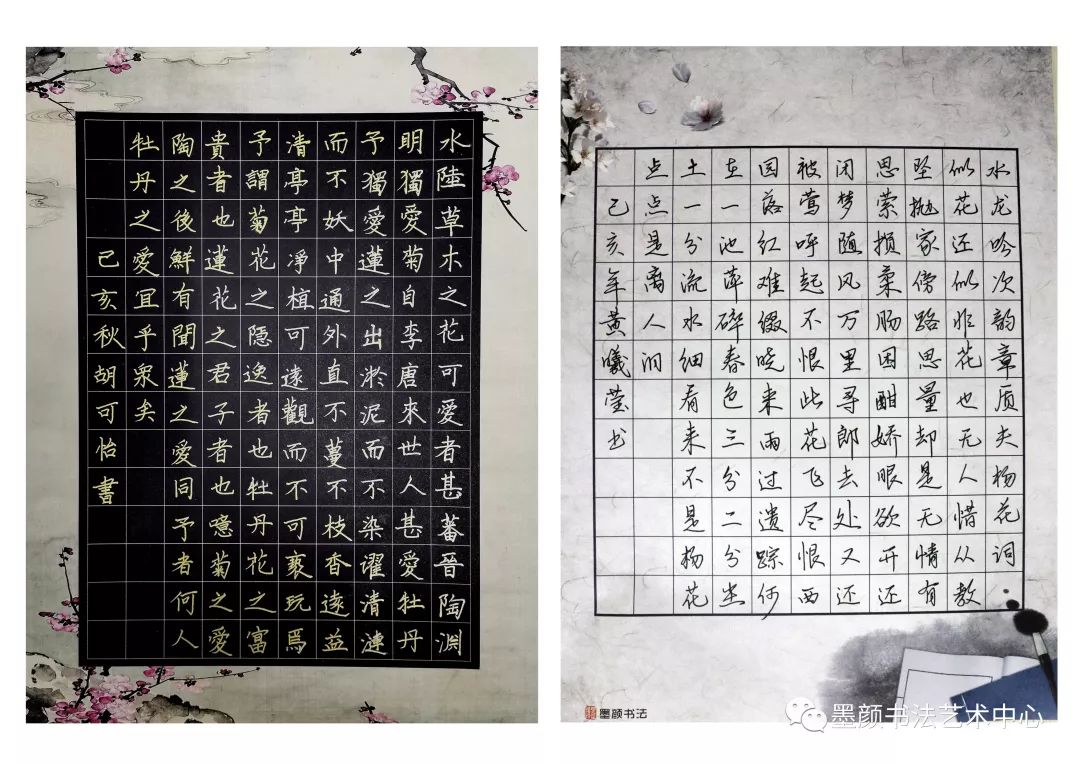 水陸草木之花可愛者甚蕃晉陶淵
明獨愛菊自李唐來世人甚愛牡丹
予獨愛蓮之出淤泥而不染濯清漣
而不妖中通外直不蔓不枝香遠益
清亭亭淨植可遠觀而不可褻玩焉
予謂菊花之隱逸者也牡丹花之富
貴者也蓮花之君子者也噫菊之愛
陶之後鮮有聞蓮之愛同予者何人
牡丹之愛宜乎衆矣
己亥秋胡可怡書
水龙吟次韵章质夫杨花词
似花还似非花也无人惜从教
坠抛家傍路思量却是无情有
思萦损柔肠困酣娇眼欲开还
闭梦随风万里寻郎去处又还
被莺呼起不恨此花飞尽恨西
园落红难缀晓来雨过遗踪何
在一池萍碎春色三分二分尘
土一分流水细看来不是杨花
点点是离人泪
己亥年黄曦莹书
墨颜书法
墨颜书法艺术中心